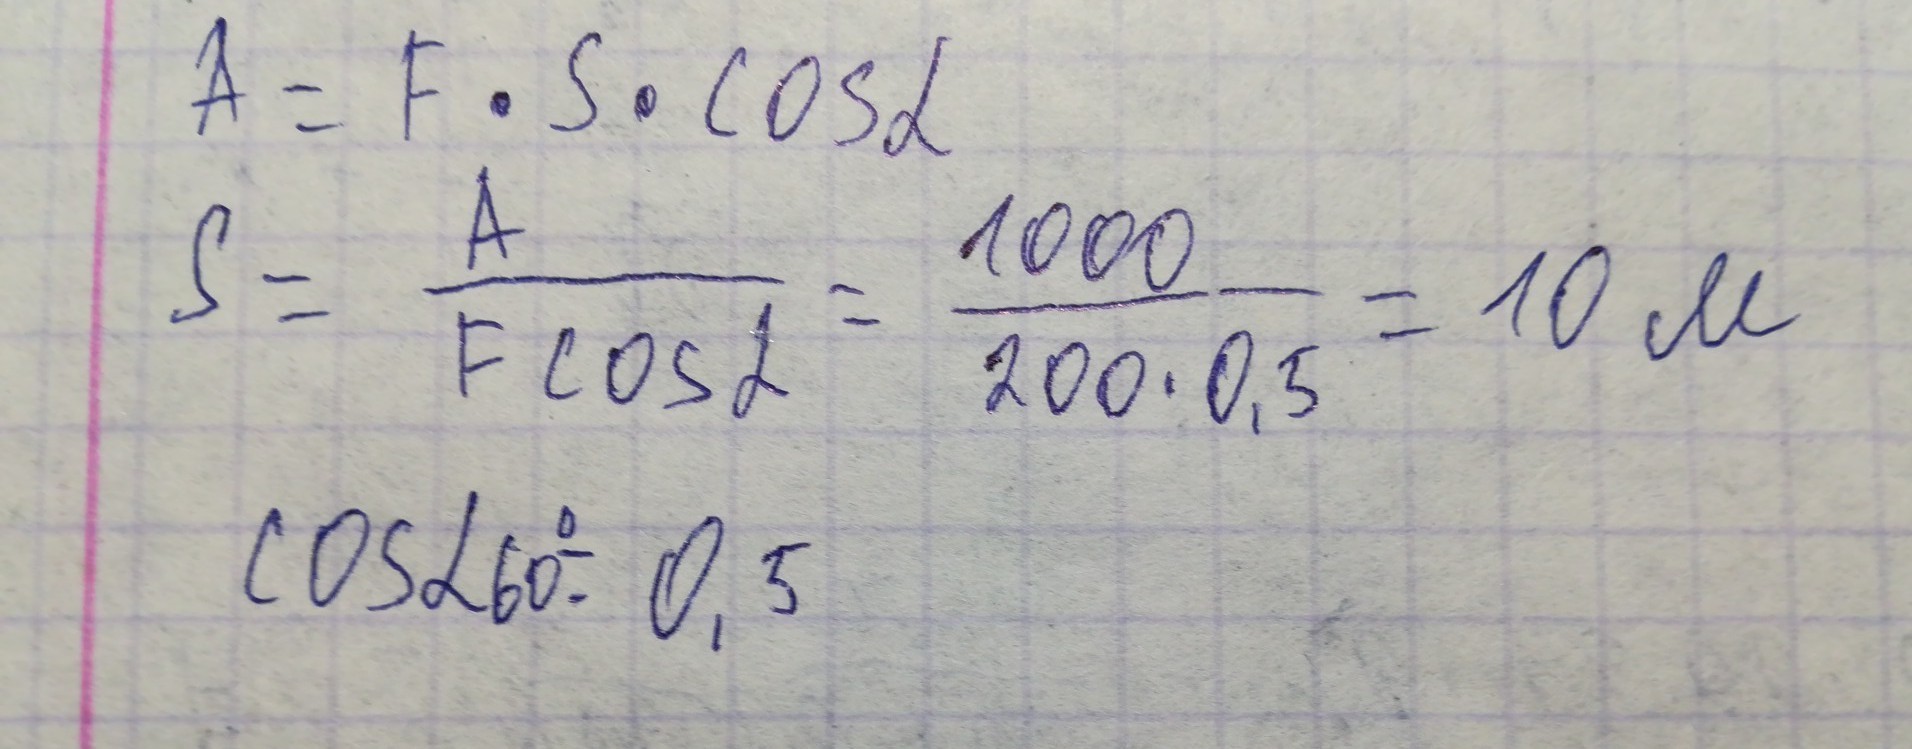 A = F · S · cosα
S = A / F cosα = 1000 / 200 · 0,5 = 10 м
cosα60° = 0,5